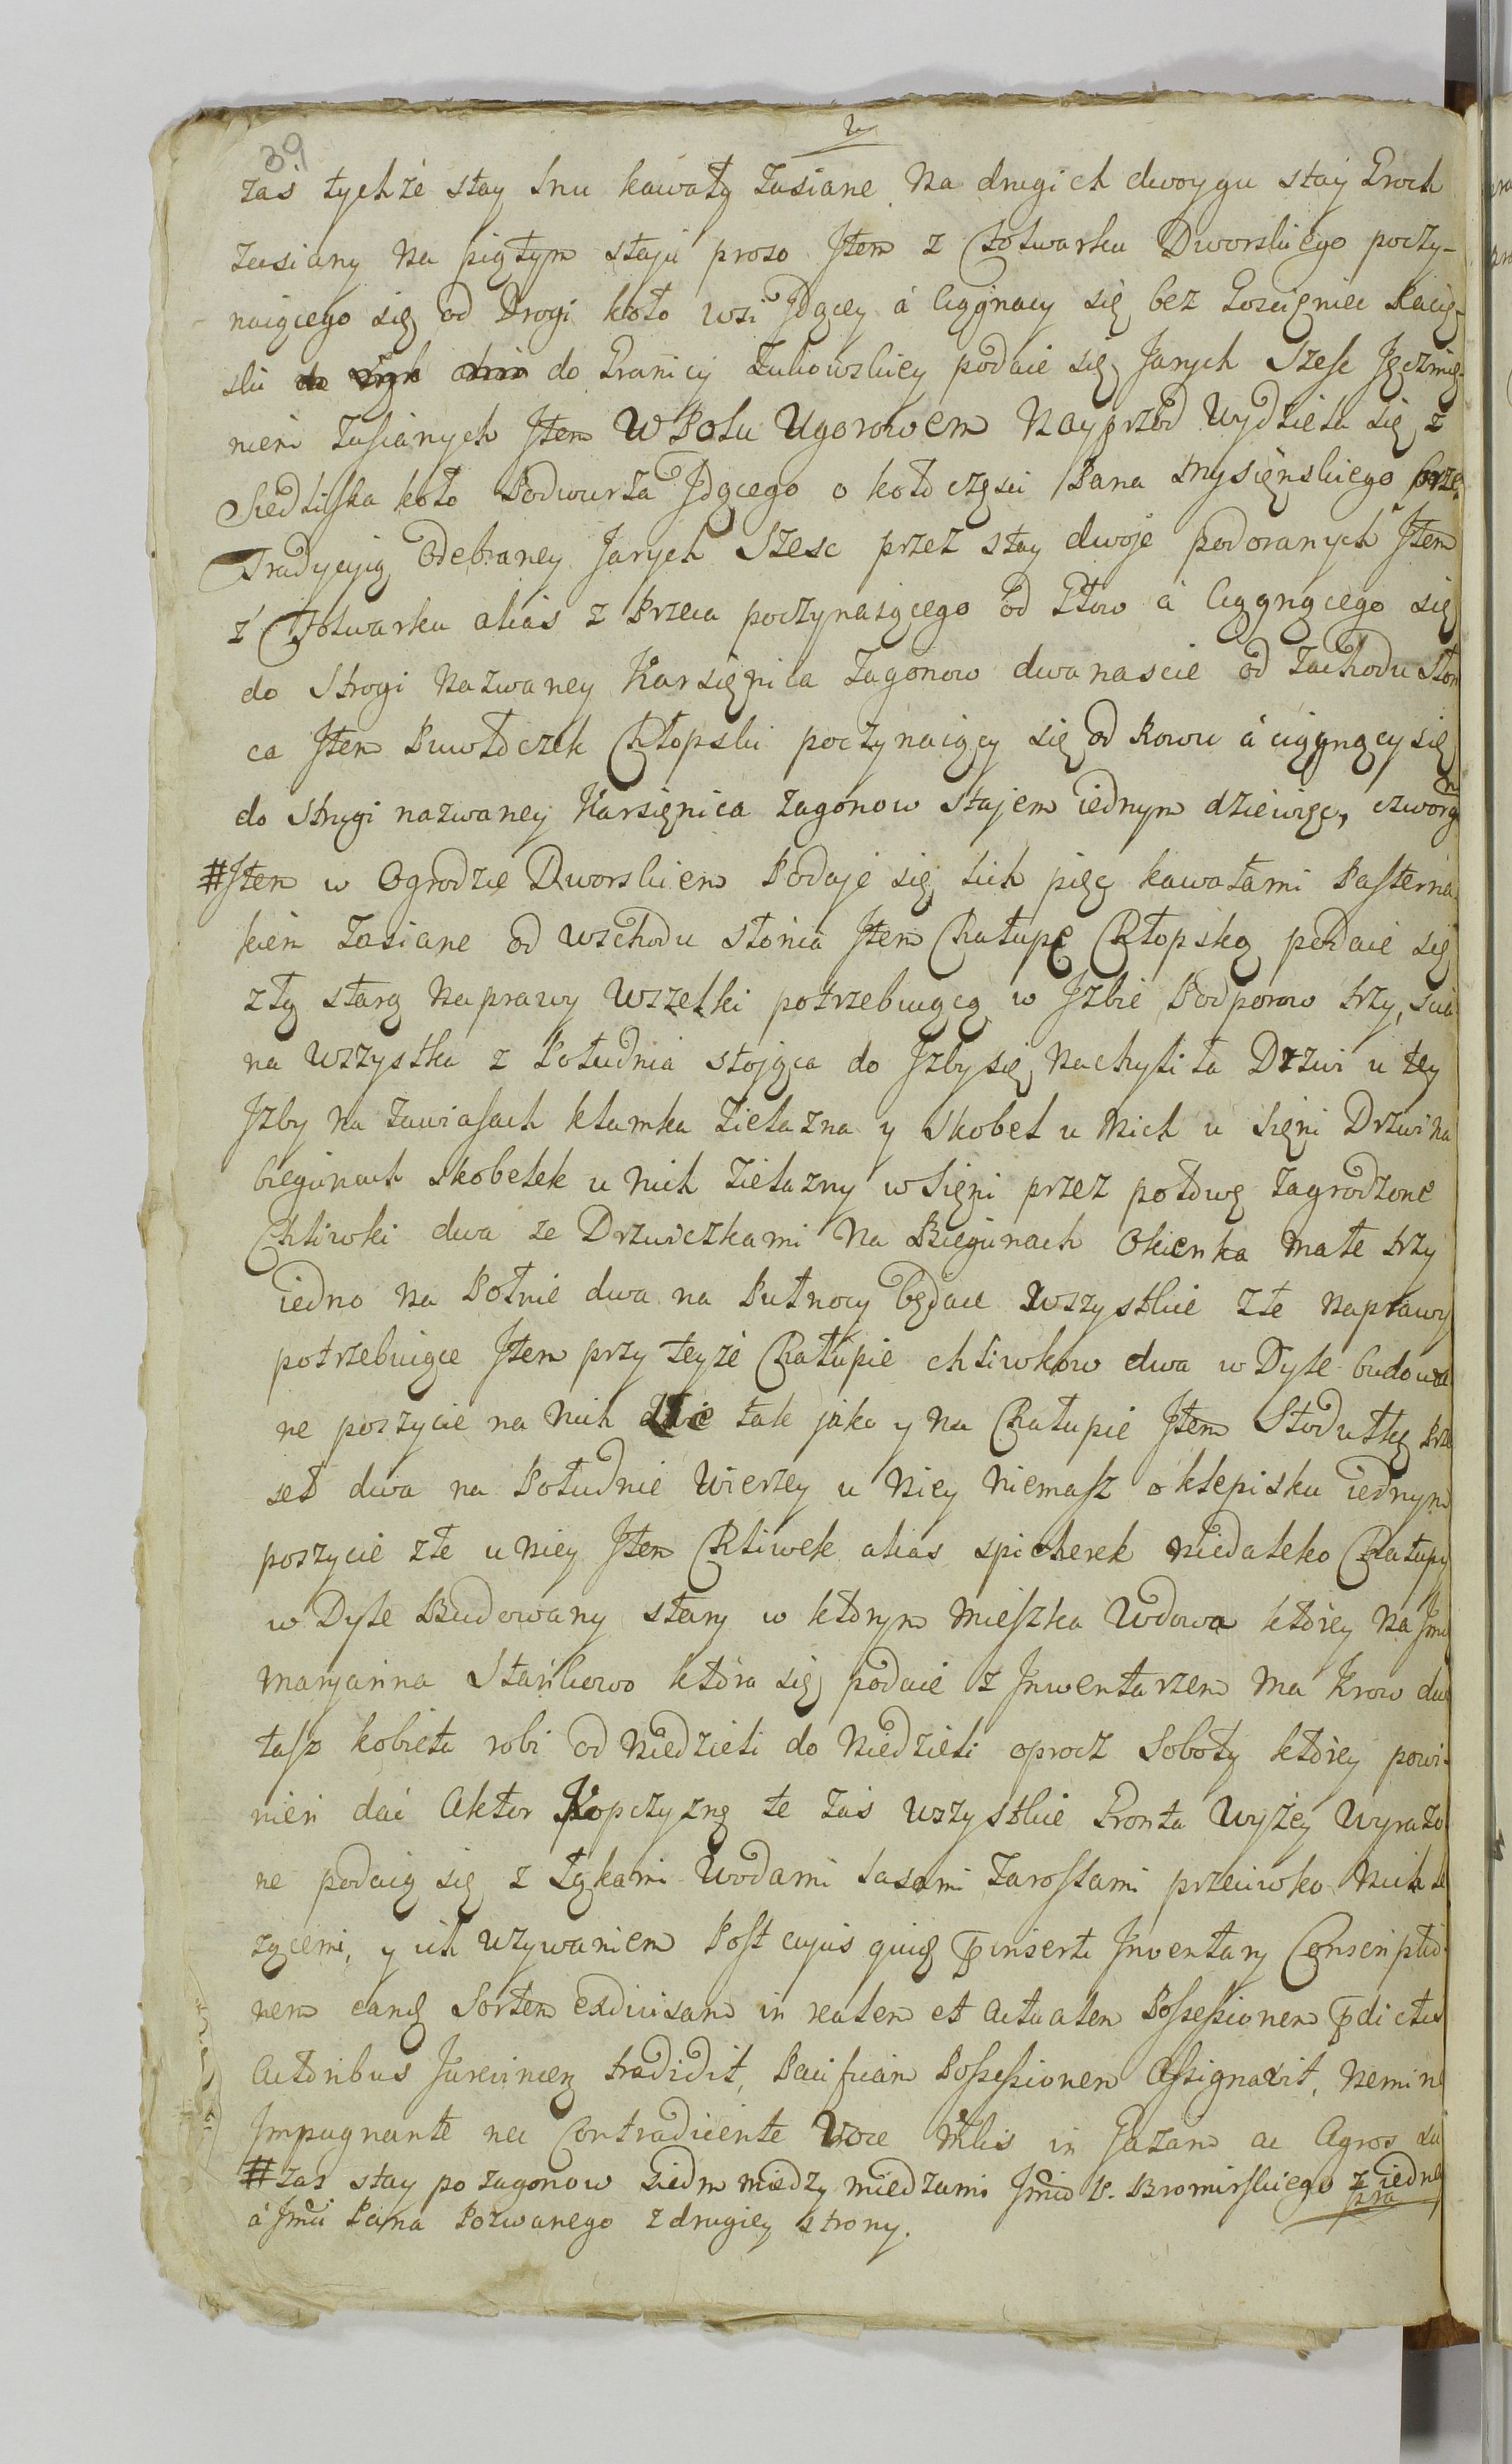 39
zaś tychże stay lnu kawały zasiane. Na drugich dwoygu stay Groch
zasiany na piątym staju proso Jtem z Ffolwarku Dworskiego poczy-
naiącego się od Drogi koło wsi Jdącey á Ciągnący się bez Goscięniec Racią-
ski do Granicy Żukowskiey podaie się Jarych Szesc Jęczmię-
niem zasianych Jtem W Polu Ugorowem Nayprzod Wydziela się z
Siedliska koło Podwurza Jdącego o koło częsci Pana Mysięnskiego prze
Tradycyią Odebraney Jarych Szesc przez stay dwoje podoranych Jtem
z Ffolwarku alias z Przeca poczynaiącego od Płow á Ciągnącego się
do Strogi Nazwaney Karsięnica Zagonow dwanascie od Zachodu Słon
ca Jtem Puwłoczek Chłopski poczynaiący się od Rowu á ciągnący się
do Strugi nazwaney Karsięnica zagonow stajem iednym dziewięc, czworga
#Jtem w Ogrodzie Dworskiem Podaje się lich pięc kawałami Pasterna
kiem Zasiane od Wschodu słonca Jtem Chałupę Chłopską podaie się
złą starą Naprawy Wszelki potrzebuiącą w Jzbie Podporow trzy, scia
na Wszystka z Południa stojąca do Jzby się Nachyliła Drzwi u tey
Jzby na Zawiasach klamka Zielazna y Skobel u Nich u Sięni Drzwi na
biegunach skobelek u nich Zielazny w Sięni przez połowę Zagrodzone
Chliwki dwa ze Drzwiczkami Na Biegunach Okienka Małe trzy
iedno na Połnie dwa na Pułnocy będące Wszystkie złe Naprawy
potrzebuiące Jtem przy teyże Chałupie chliwkow dwa w Dyle budowa
ne poszycie na nich złe tak jako y na Chałupie Jtem Stodułkę prze
seł dwa na Południe Wierzey u Niey Niemasz o klepisku iednym
poszycie złe u niey Jtem Chliwek alias spicherek Niedaleko Chałupy
w Dyle Budowany stary w ktorym Mieszka Wdowa ktorey na Jmie
Maryanna Stańkowo ktora się podaie z Jnwentarzem Ma Krow dwie
tasz kobieta robi od Niedzieli do Niedzieli oprocz Soboty ktorey powi-
nień dać Aktor Kopczyznę te zaś wszystkie Gronta Wyżey Wyrażo
ne podaią się z Łąkami Wodami Lasami Zaroslami przeciwko Nich le
zącemi, y ich Uzywaniem Post cujus quidem præinserti Jnventary Conscriptio
nem eandem Sortem exdivisam in realem et actualem Possessionem prædictis
Actoribus Jurevincen tradidit, Pacificam Possessionem Assignavit, Nemine
Jmpugnante nec Contradicente in ac Agros
#zas stay po zagonow siedm między miedzami Jmći P. Bromirskiego z iedne
á Jmći Pana Pozwanego z drugiey strony.